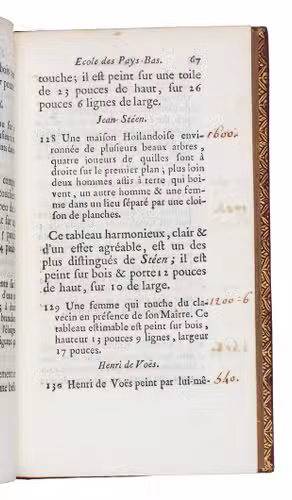 Ecole des Pays-Bas. 67
touche; il est peint sur une toile
de 23 pouces de haut, sur 26
pouces 6 lignes de large.
Jean Stéen.
128 Une maison Hollandoise envi-
ronnée de plusieurs beaux arbres,
quatre joueurs de quilles sont à
droite sur le premier plan; plus loin
deux hommes assis à terre qui boi-
vent, un autre homme & une fem-
me dans un lieu séparé par une cloi-
son de planches.
1600.
Ce tableau harmonieux, clair &
d'un effet agréable, est un des
plus distingués de Stéen; il est
peint sur bois & porte 12 pouces
de haut, sur 10 de large.
129 Une femme qui touche du cla-
vecin en présence de son Maître. Ce
tableau estimable est peint sur bois,
hauteur 13 pouces 9 lignes, largeur
17 pouces.
1200-6
Henri de Voës.
130 Henri de Voës peint par lui-mê-
540.